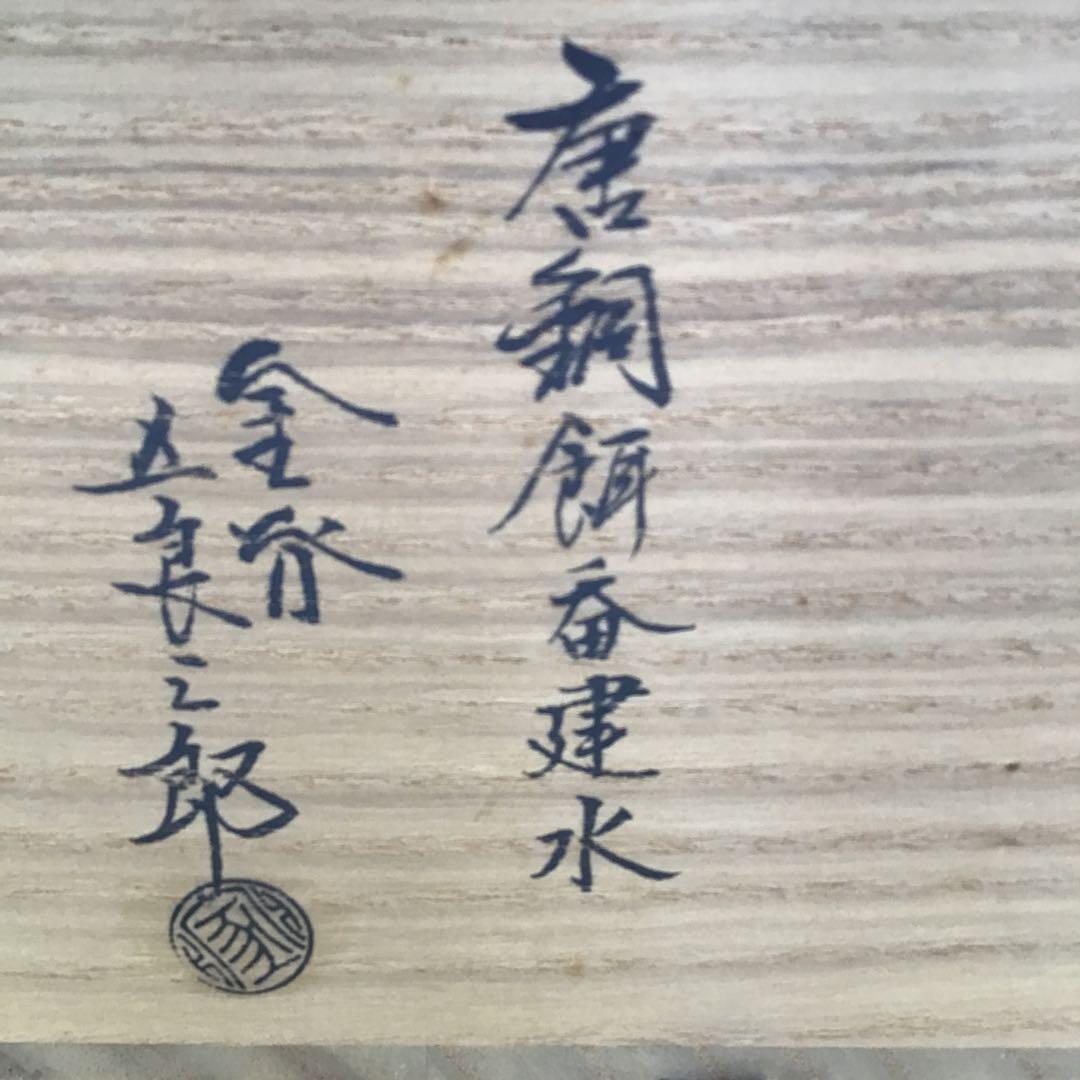 唐銅餌畚建水
金谷
五良三郎